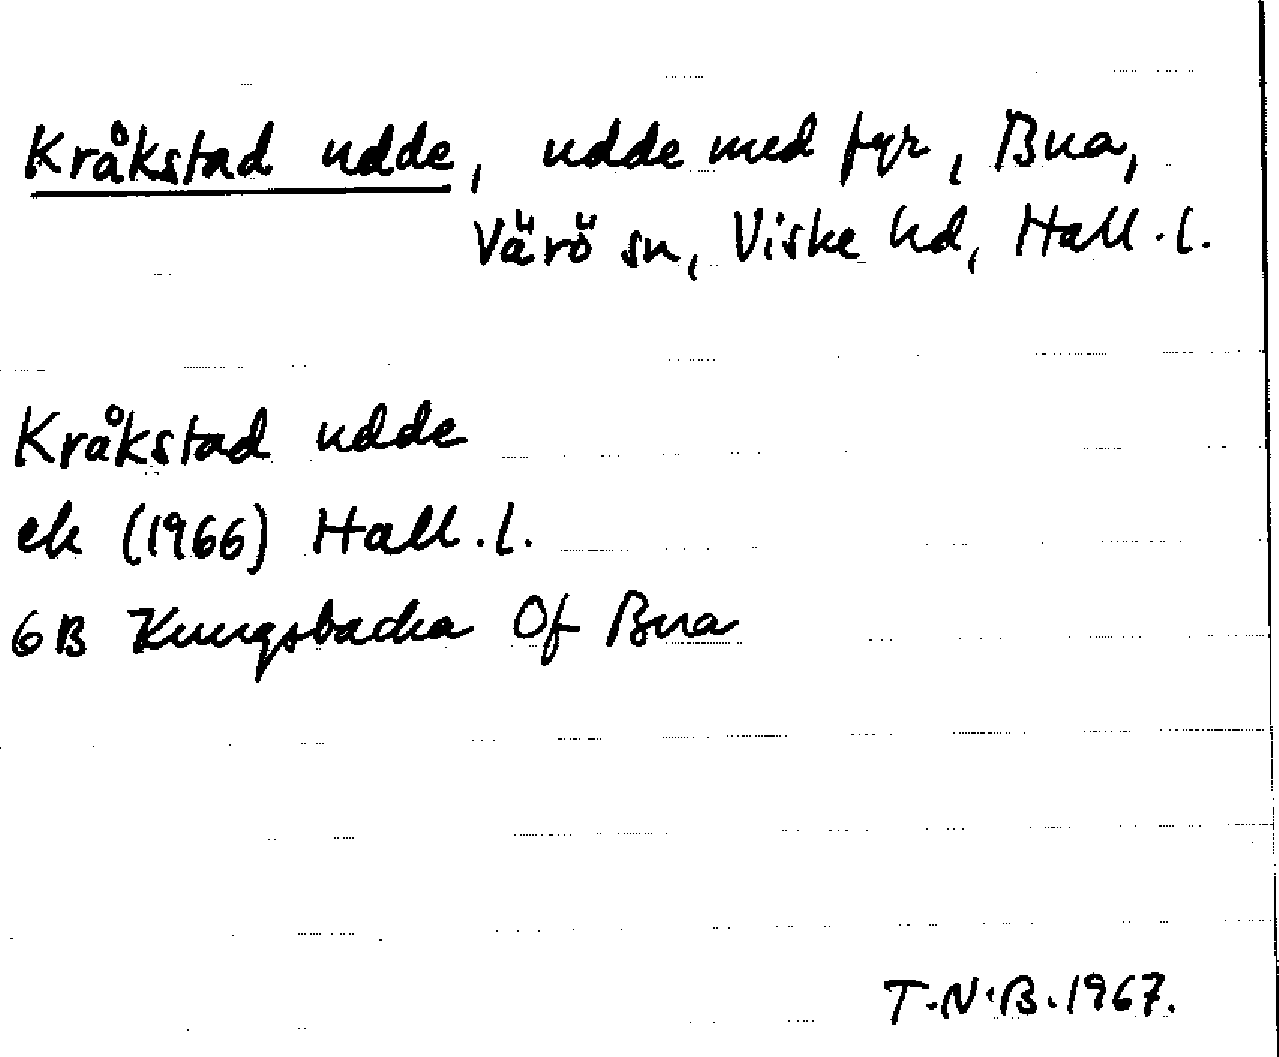 Kråkstad udde, udde med fyr, Bua,
Värö sn, Viske hd, Hall.l.
Kråkstad udde
ek (1966) Hall.l.
6B Kungsbacka 0f Bua
T.N.B.1967.